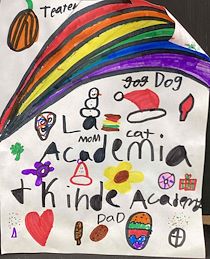 Teater
gog Dog
La
cat
MOM
Academia
+ Kinde Academ
DaD